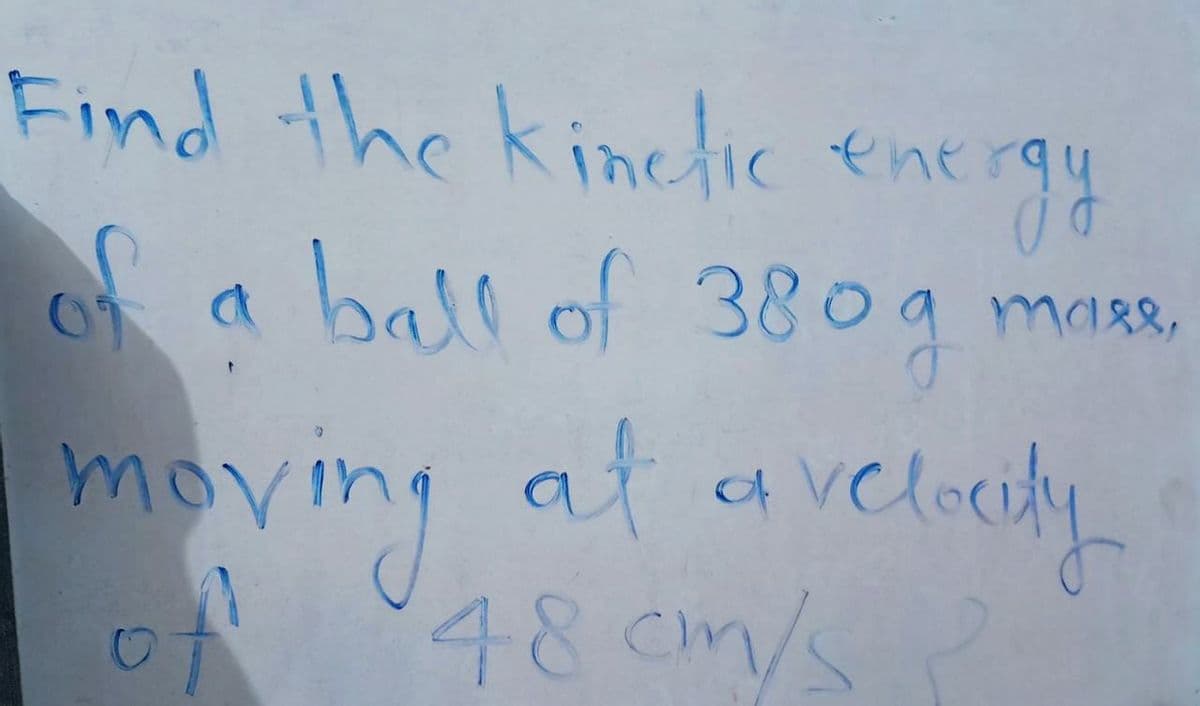 Find the kinetic energy
of a ball of 380g mass,
moving at a velocity
of 48 cm/s ?